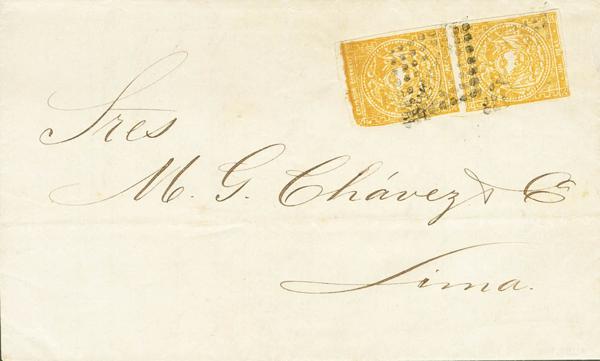 Sres
M. G. Chávez & C
Lima.